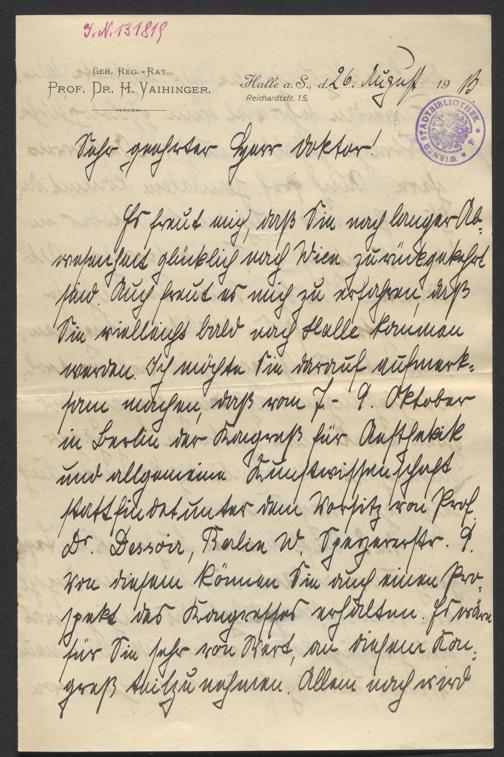 I.N. 131819
GEH. REG.-RAT
PROF. DR. H. VAIHINGER.
Halle a. S., d. 26. August 1913
Reichardtstr. 15.
WIENER STADTBIBLIOTHEK
Sehr geehrter Herr Doktor!
Es freut mich, daß Sie nach langer Ab-
wesenheit glücklich nach Wien zurückgekehrt
sind. Auch freut es mich zu erfahren, daß
Sie vielleicht bald nach Halle kommen
werden. Ich möchte Sie darauf aufmerk-
sam machen, daß vom 7 - 9. Oktober
in Berlin der Kongreß für Aesthetik
und allgemeine Kunstwissenschaft
stattfindet unter dem Vorsitz von Prof.
Dr. Dessoir, Berlin W. Speyererstr. 9.
Von diesem können Sie auch einen Pro-
spekt des Kongresses erhalten. Es wäre
für Sie sehr von Wert, an diesem Kon-
greß teilzunehmen. Allem nach wird